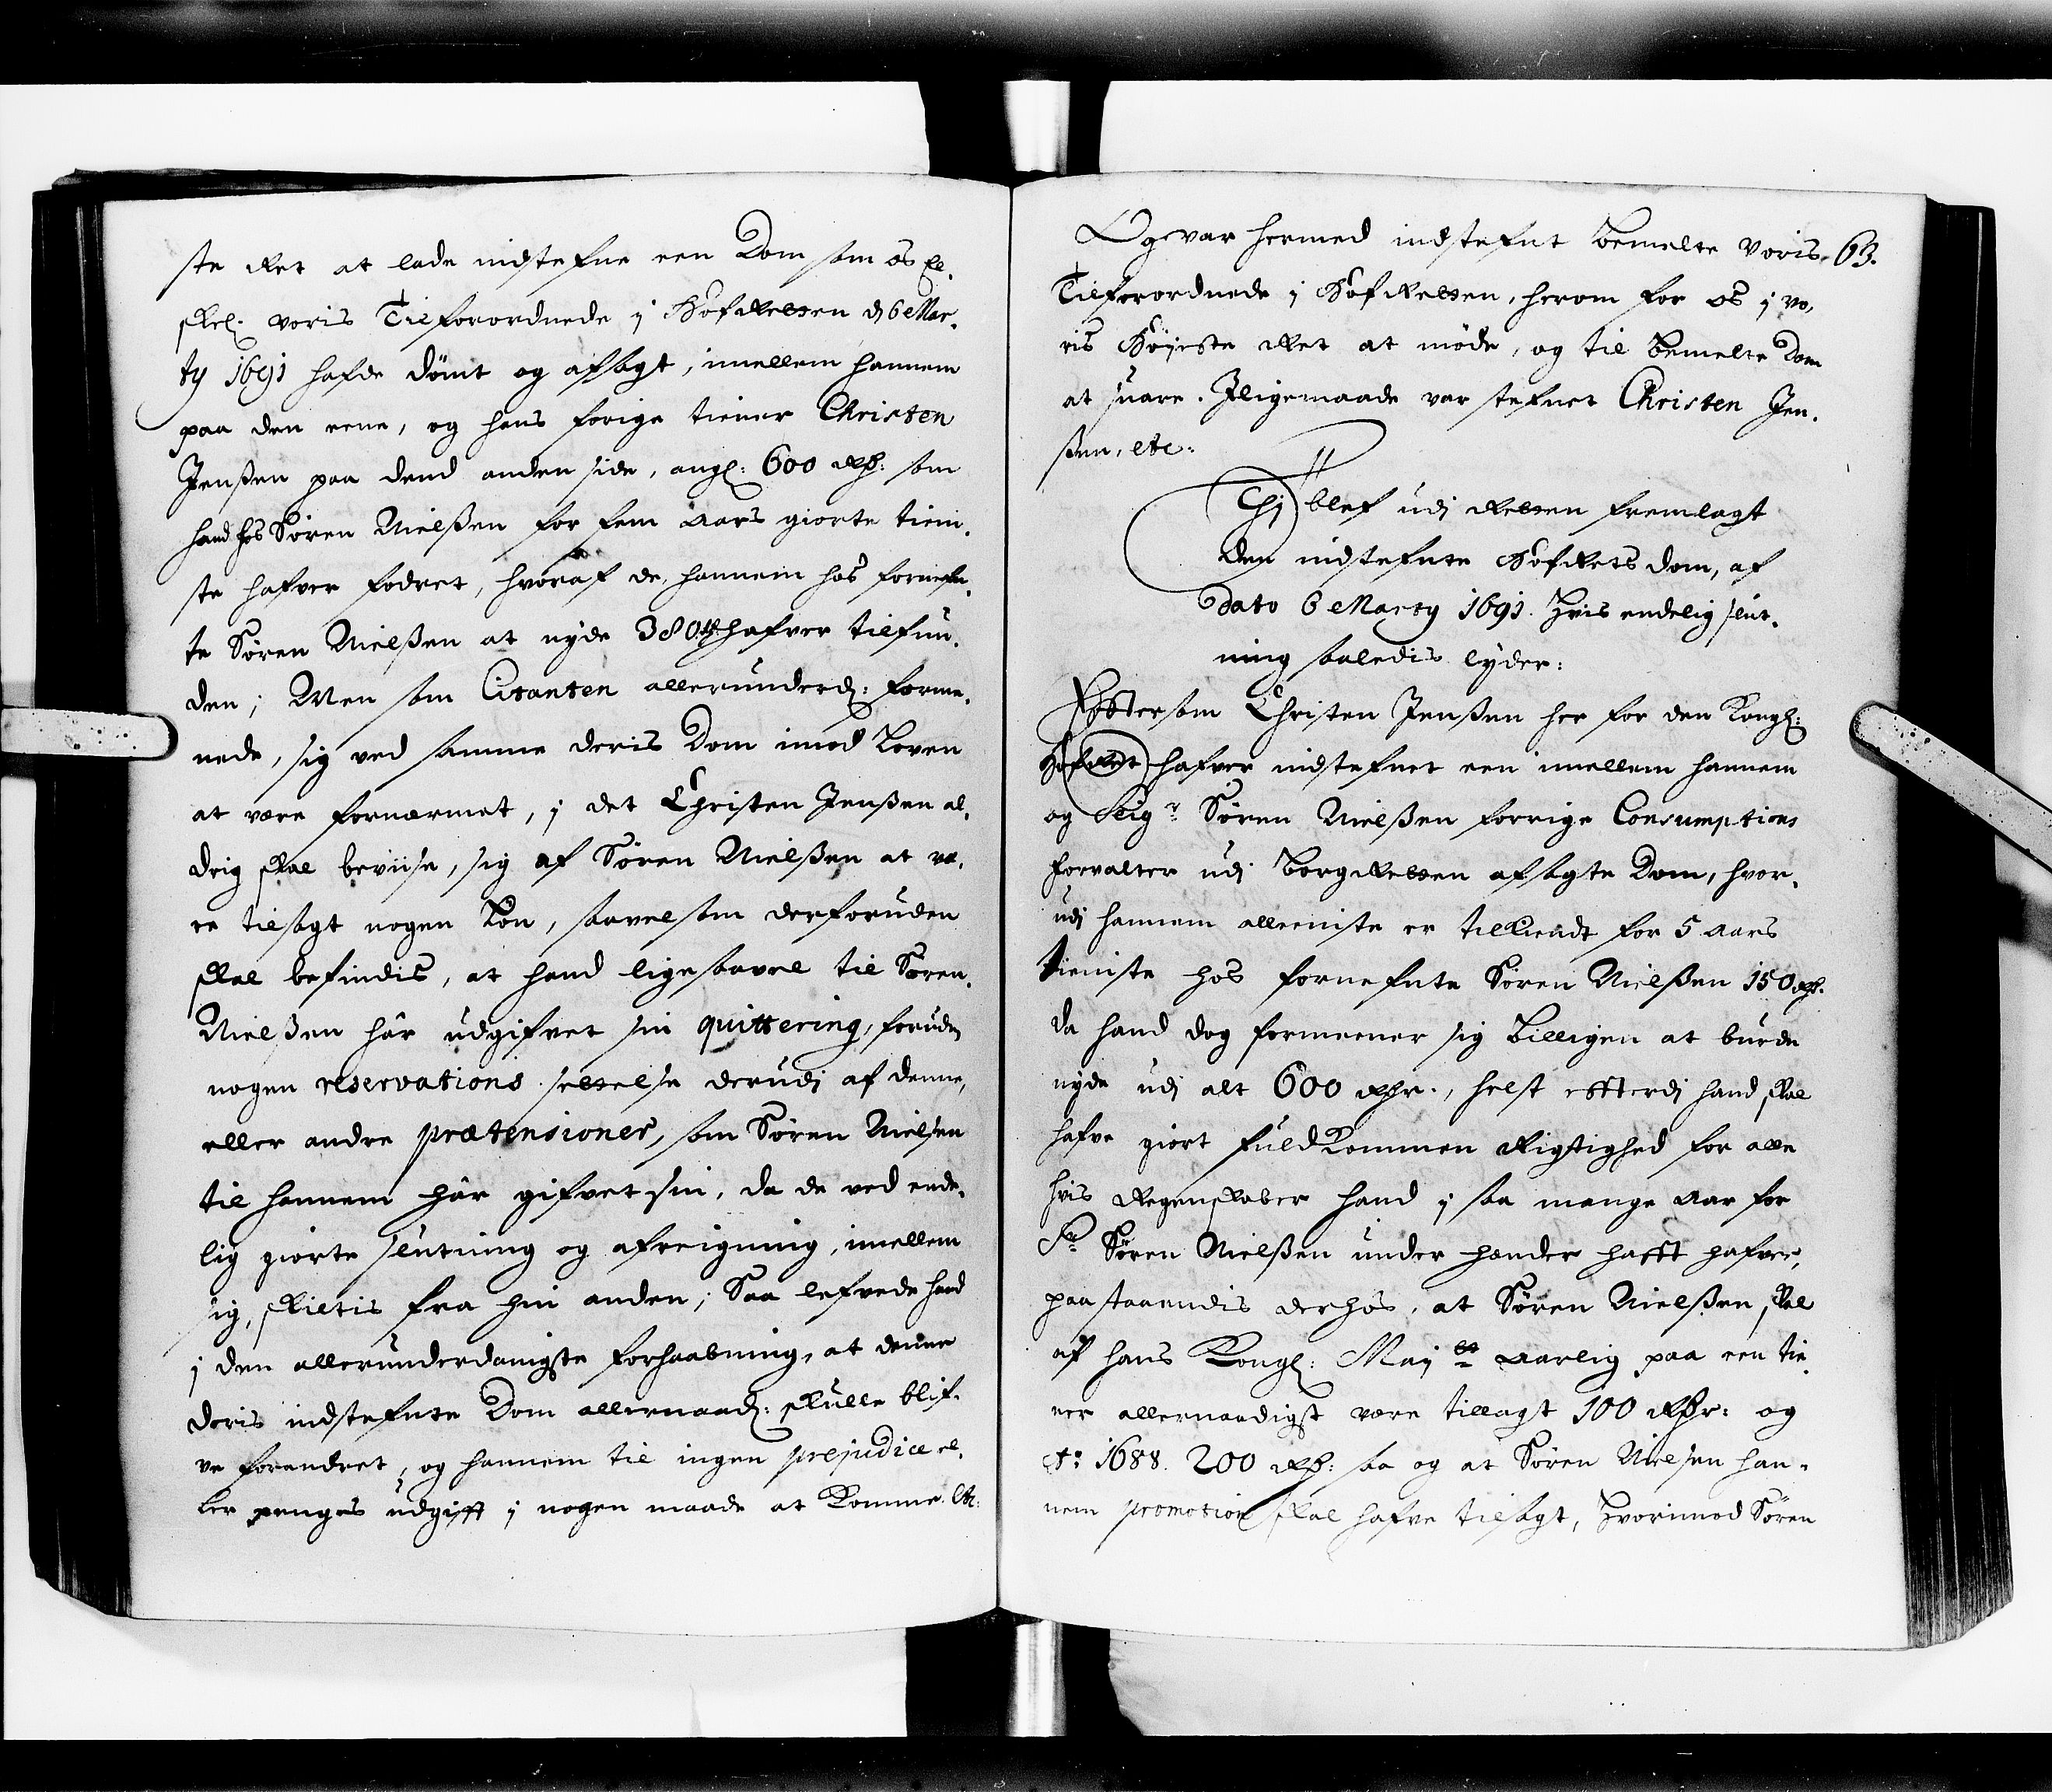 ste Ret at lade indstefne een Dom som os El.
skel. voris Tilforordnede j HofRetten d 6 Mar.
ty 1691 hafde dömt og afsagt, imellem hannem
paa den eene, og hans forige tiener Christen
Jenßen paa dend anden side, angl: 600 Rd: som
hand hos Sören Nielßen for fem Aars giorte tieni.
ste hafver fodret, hvoraf de, hannem hos fornefn.
te Sören Nielßen at nyde 380 Rd hafver tilfun.
den; Men som Citanten allerunderd: forme.
nede, sig ved samme deris Dom imod Loven
at være fornærmet, j det Christen Jenßen al.
drig skal beviise, sig af Sören Nielßen at væ.
re tilsagt nogen Lön, saavelsom derforuden
skal befindis, at hand ligesaavel til Sören
Nielßen här udgifvet sin quittering, foruden
nogen reservations settelse derudj af denne,
eller andre prætensioner, som Sören Nielsen
til hannem här gifvet sin, da de ved ende.
lig giorte slutning og afreigning, imellem
sig, skiltis fra hin anden; Saa lefvede hand
j den allerunderdanigste forhaabning, at denne
deris indstefnte Dom allernaad: skulle blif.
ve forandret, og hannem til ingen prejudice el.
ler penges udgifft j nogen maade at komme. etc:
63.
Og var hermed indstefnt bemelte voris
Tilforordnede j HofRetten, herom for os j vo,
ris Höjeste Ret at möde, og til bemelte Dom
at suare. Jligemaade var stefnet Christen Jen.
ßen, etc:
Thj blef udj Retten fremlagt
den indstefnte HofRets dom, af
Dato 6 Marty 1691. Hvis endelig slut.
ning saaledis lyder:
Effttersom Christen Jenßen her for den Kongl:
HofRet hafver indstefnet een imellem hannem
og Seigr Sören Nielßen forrige Consumptions
forvalter udj BorgRetten afsagte Dom, hvor.
udj hannem alleeniste er tilkiendt for 5 Aars
tieniste hos fornefnte Sören Nielßen 150 Rd.
da hand dog formeener sig billigen at burde
nyde udj alt 600 Rdr., helst effterdj hand skal
hafve giort fuldkommen Rigtighed for alle
hvis Regenskaber hand j saa mange Aar for
Sr Sören Nielßen under hænder hafft hafver,
paastaaendis derhos, at Sören Nielßen skal
af hans Kongl: Mayts aarlig paa een tie.
ner allernaadigst være tillagt 100 Rdr: og
Ao 1688. 200 Rd: saa og at Sören Nielsen han.
nem promotion skal hafve tilsagt, Hvorimod Sören